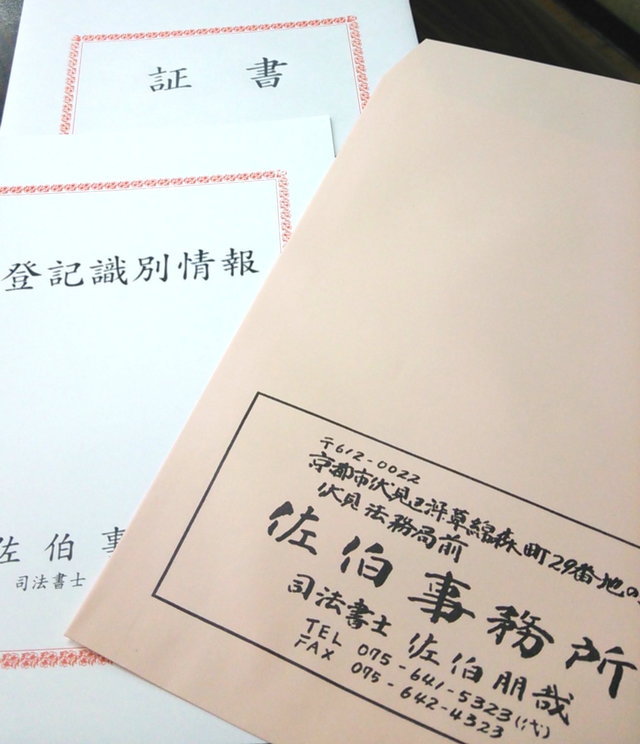 証 書
登記識別情報
佐伯事
司法書士
〒612-0022
京都市伏見区深草綿森町29番地の
伏見法務局前
佐伯事務所
司法書士 佐伯朋哉
TEL 075-641-5323(代)
FAX 075-642-4323